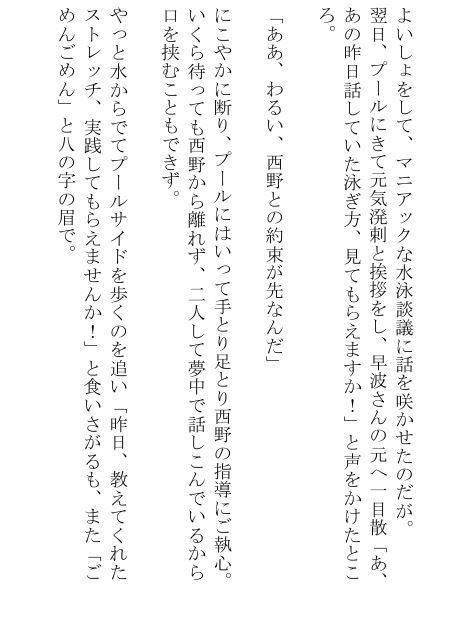 よいしょをして、マニアックな水泳談議に話を咲かせたのだが。
翌日、プールにきて元気溌剌と挨拶をし、早波さんの元へ一目散「あ、
あの昨日話していた泳ぎ方、見てもらえますか！」と声をかけたとこ
ろ。
「ああ、わるい、西野との約束が先なんだ」
にこやかに断り、プールにはいって手とり足とり西野の指導にご執心。
いくら待っても西野から離れず、二人して夢中で話しこんでいるから
口を挟むこともできず。
やっと水からでてプールサイドを歩くのを追い「昨日、教えてくれた
ストレッチ、実践してもらえませんか！」と食いさがるも、また「ご
めんごめん」と八の字の眉で。